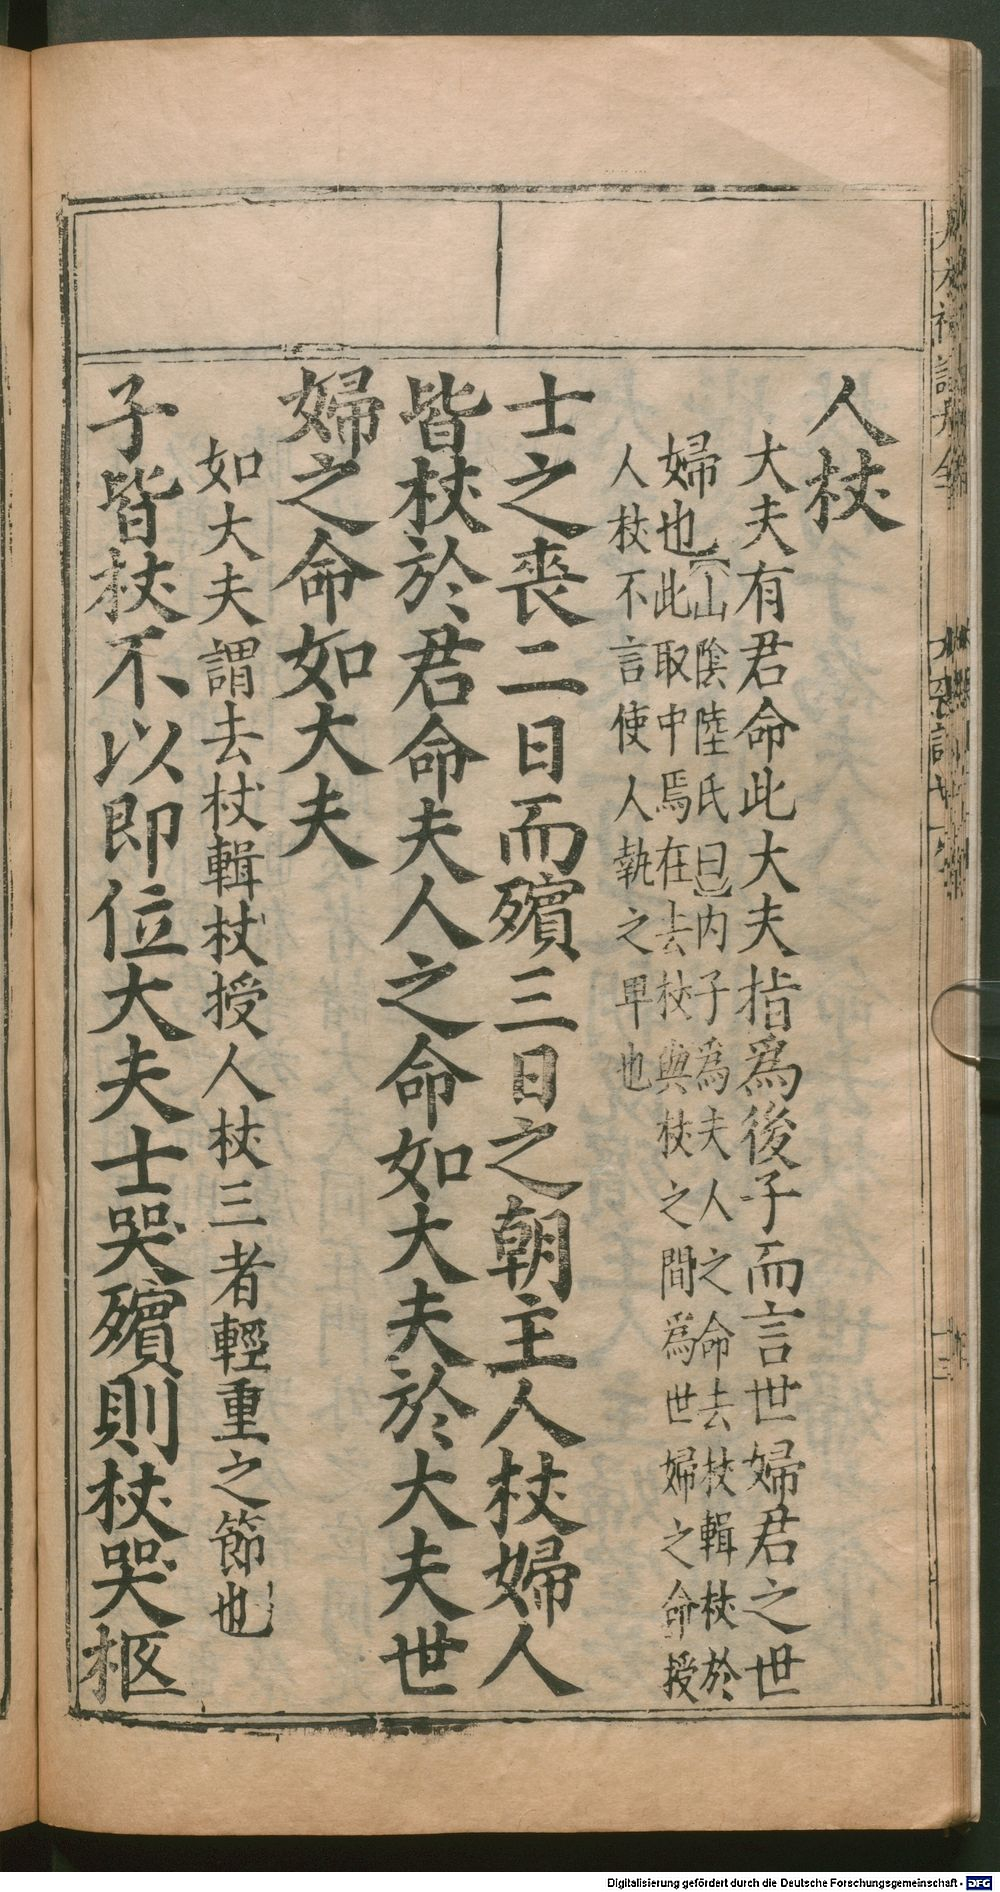 人杖
大夫有君命此大夫指爲後子而言世婦君之世
婦也【山陰陸氏曰】内子爲夫人之命去杖輯杖於
此取中焉在去杖與杖之間爲世婦之命授
人杖不言使人執之卑也
士之喪二日而殯三日之朝主人杖婦人
皆杖於君命夫人之命如大夫於大夫世
婦之命如大夫
如大夫謂去杖輯杖授人杖三者輕重之節也
子皆杖不以即位大夫士哭殯則杖哭柩
Digitalisierung gefördert durch die Deutsche Forschungsgemeinschaft - DFG